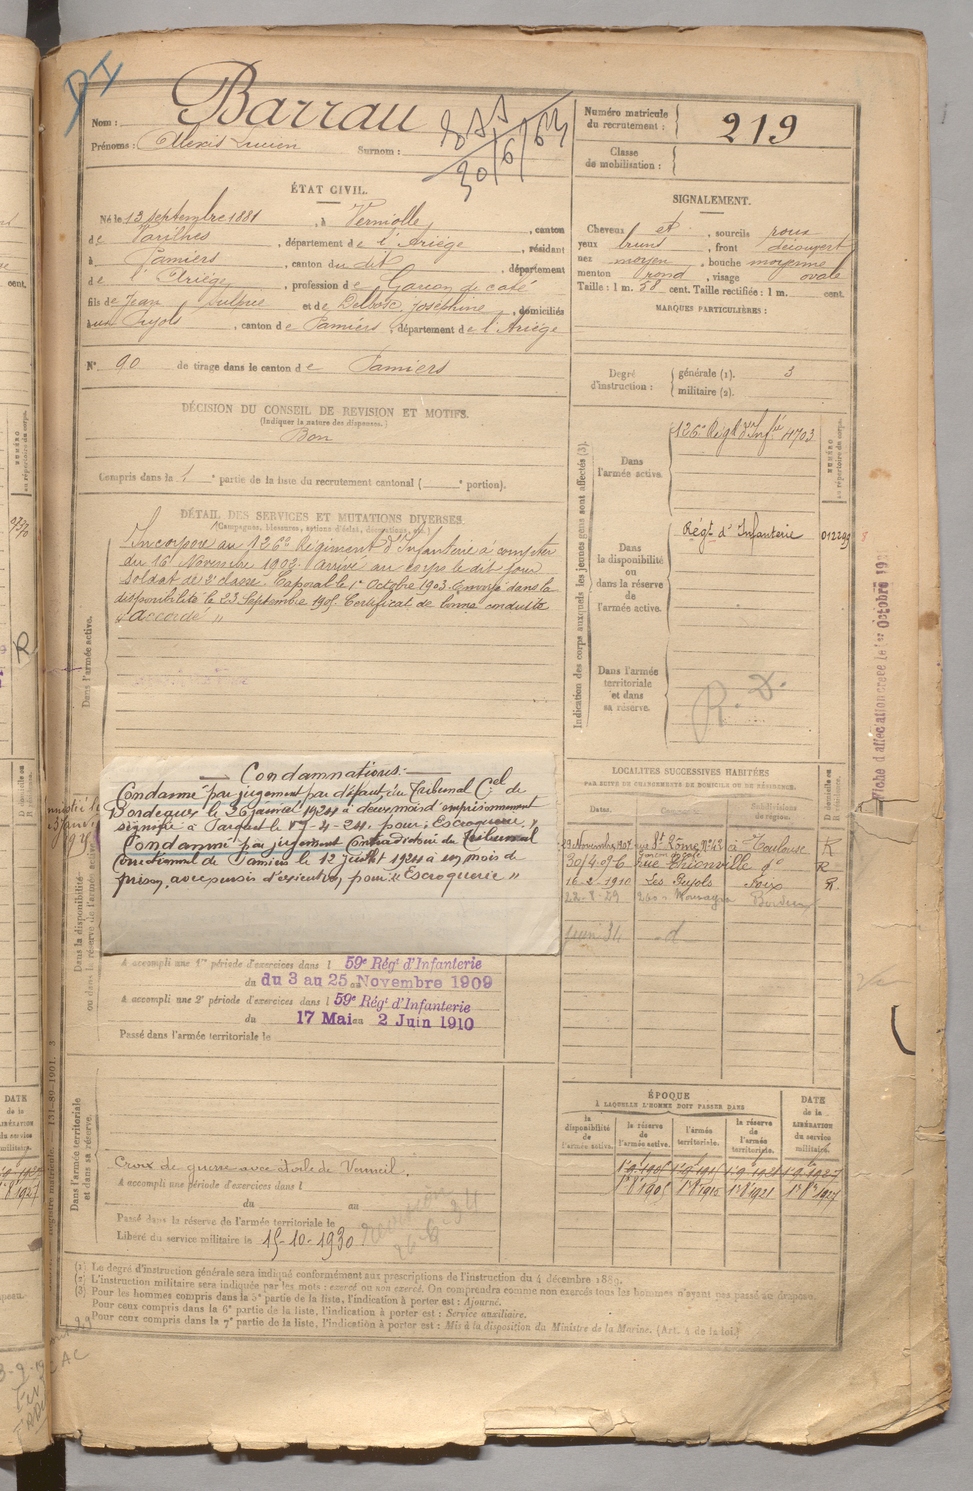 Nom : Barrau
Prénoms : Alexis Lucien Surnom :
30/6/64
Numéro matricule du recrutement : 219
Classe de mobilisation :
ÉTAT CIVIL.
Né le 13 septembre 1881, à Verniolle, canton
de Varilhes, département de l'Ariège, résidant
à Pamiers, canton du dit, département
de l'Ariège, profession de Garçon de café
fils de Jean Sulpice et de Joséphine, domiciliés
aux Pujols, canton de Pamiers, département de l'Ariège
N° 90 de tirage dans le canton de Pamiers
SIGNALEMENT.
Cheveux et , sourcils roux
yeux bruns , front découvert
nez moyen , bouche moyenne
menton rond , visage ovale
Taille : 1 m. 58 cent. Taille rectifiée : 1 m. cent.
MARQUES PARTICULIÈRES :
Degré d'instruction : générale (1). 3
militaire (2).
DÉCISION DU CONSEIL DE REVISION ET MOTIFS.
(Indiquer la nature des dispenses.)
Bon
Compris dans la 1 partie de la liste du recrutement cantonal ( portion).
DÉTAIL DES SERVICES ET MUTATIONS DIVERSES.
Dans l'armée active.
Incorporé au 126e Régiment d'Infanterie à compter
du 16 Novembre 1902. Arrivé au corps le dit jour
Soldat de 2e classe. Caporal le 1er Octobre 1903. Envoyé dans la
disponibilité le 23 Septembre 1905. Certificat de bonne conduite
"Accordé"
Indication des corps auxquels les jeunes gens sont affectés (3).
NUMÉRO au répertoire du corps.
Dans l'armée active.
126e Régt d'Infie 4703
Dans la disponibilité ou dans la réserve de l'armée active.
Régt d'Infanterie 012299
Dans l'armée territoriale et dans sa réserve.
R. D.
Condamnations :
Condamné par jugement par défaut du Tribunal Cel de
Bordeaux le 26 janvier 1924 à deux mois d'emprisonnement
signifié à Parquet le 17-4-24. pour : Escroquerie.
Condamné par jugement contradictoire du Tribunal
Correctionnel de Pamiers le 12 juillet 1924 à un mois de
prison, avec sursis d'exécution, pour "Escroquerie"
Dans la disponibilité ou dans la réserve de l'armée active.
A accompli une 1re période d'exercices dans l 59e Régt d'Infanterie
du 3 au 25 Novembre 1909
A accompli une 2e période d'exercices dans l 59e Régt d'Infanterie
du 17 Mai au 2 Juin 1910
Passé dans l'armée territoriale le
LOCALITÉS SUCCESSIVES HABITÉES
PAR SUITE DE CHANGEMENTS DE DOMICILE OU DE RÉSIDENCE.
Dates. Communes. Subdivisions de région. Domicile ou
29 Novembre 1905 rue St Rôme N°43 à Toulouse R
30/4 06 rue Thionville do R
16-2 1910 Les Pujols Foix R
Bordeaux
juin 31 - d
Fiche d'affectation créée le 1er Octobre 19
Dans l'armée territoriale et dans sa réserve.
Croix de guerre avec étoile de Vermeil.
A accompli une période d'exercices dans l
du au
Passé dans la réserve de l'armée territoriale le
Libéré du service militaire le 15-10-1930
ÉPOQUE
À LAQUELLE L'HOMME DOIT PASSER DANS
la disponibilité de l'armée active.
la réserve de l'armée active.
l'armée territoriale.
la réserve de l'armée territoriale.
DATE de la LIBÉRATION du service militaire.
(1) Le degré d'instruction générale sera indiqué conformément aux prescriptions de l'instruction du 4 décembre 1889.
(2) L'instruction militaire sera indiquée par les mots : exercé ou non exercé. On comprendra comme non exercés tous les hommes n'ayant pas passé au drapeau.
(3) Pour les hommes compris dans la 5e partie de la liste, l'indication à porter est : Ajourné.
Pour ceux compris dans la 6e partie de la liste, l'indication à porter est : Service auxiliaire.
Pour ceux compris dans la 7e partie de la liste, l'indication à porter est : Mis à la disposition du Ministre de la Marine. (Art. 4 de la loi.)